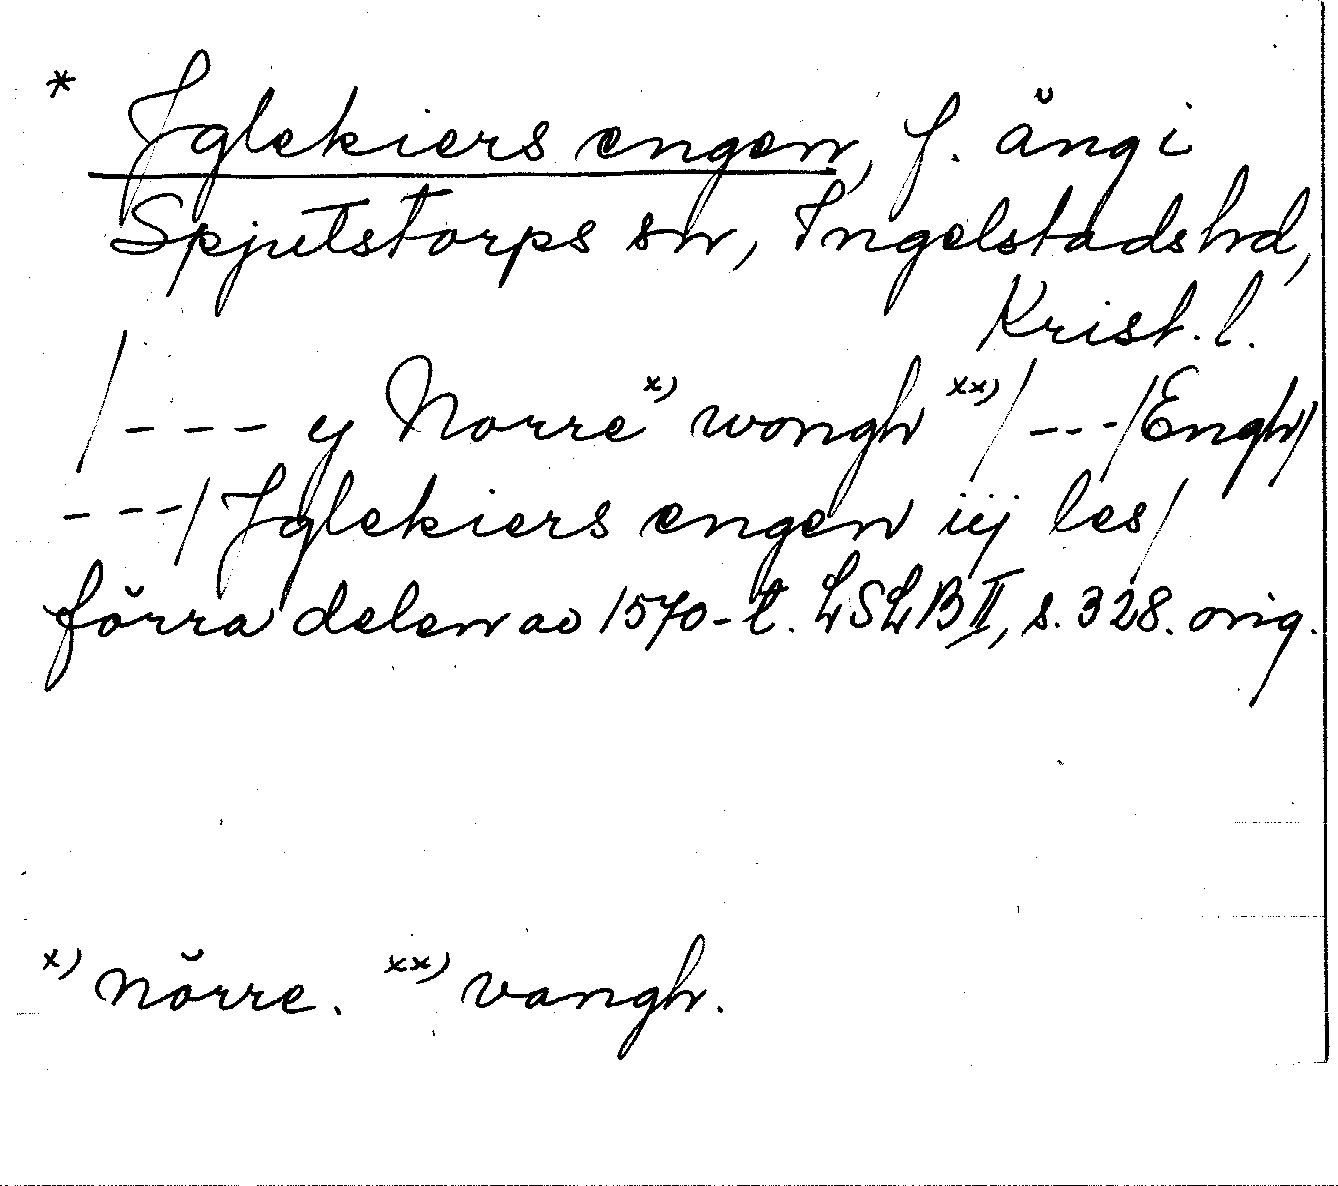 * Jglekiers engen, f. äng i
Spjutstorps sn, Ingelstads hd,
Krist. l.
/--- y Norre x) wongh xx)/ ---/Engh/
---/ Jglekiers engen iij les/
förra delen av 1570-t. LSLB II, s. 328. orig.
x) nörre. xx) vangh.